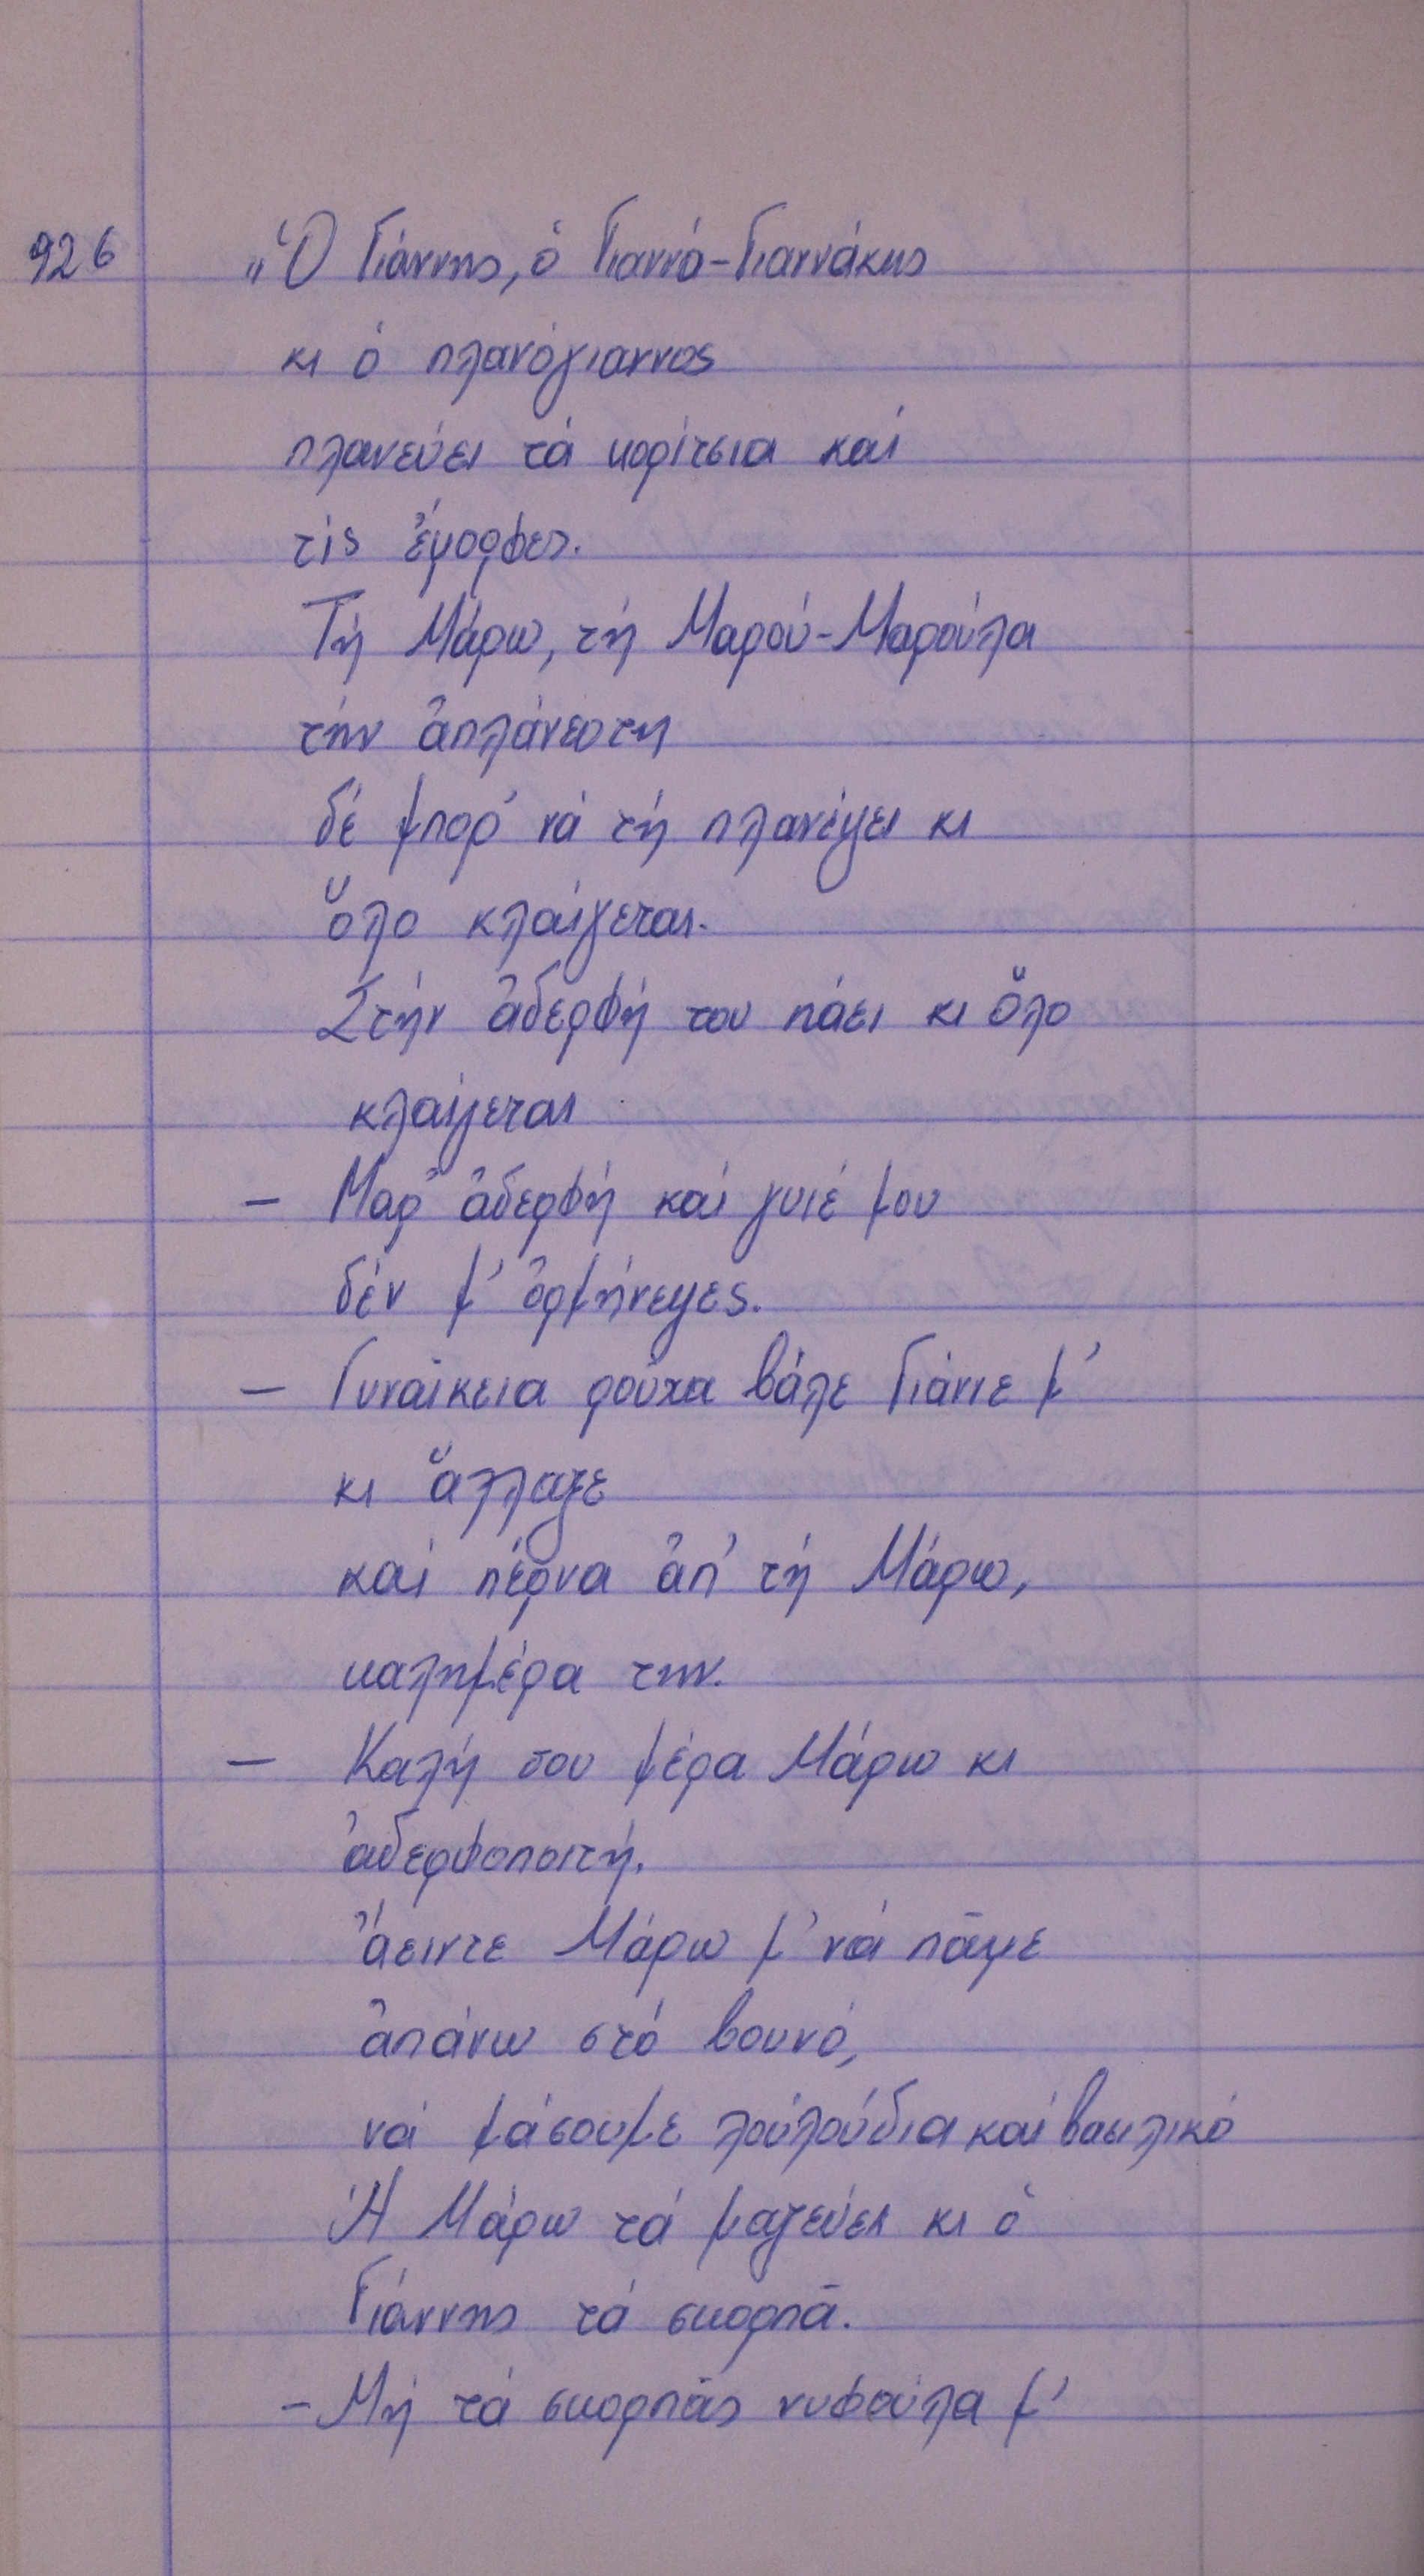 926 „Ὁ Γιάννης, ὁ Γιαννά-Γιαννάκης
κι ὁ πλανόγιαννος
πλανεύει τά κορίτσια καί
τίς ἔμορφες.
Τή Μάρω, τή Μαρού-Μαρούλα
τήν ἀπλάνεστη
δέ μπορ' νά τή πλανέψει κι
ὅλο κλαίγεται.
Στήν ἀδερφή του πάει κι ὅλο
κλαίγεται
— Μαρ' ἀδερφή καί γυιέ μου
δέν μ' ὀρμήνεψες.
— Γυναίκεια ροῦχα βάλε Γιάννε μ'
κι ἄλλαξε
καί πέρνα ἀπ' τή Μάρω,
καλημέρα την.
— Καλή σου μέρα Μάρω κι
ἀδερφοποιτή.
ἄειντε Μάρω μ' νά πᾶμε
ἀπάνω στό βουνό,
νά μάσουμε λούλούδια καί βασιλικό
Ἡ Μάρω τά μαζεύει κι ὁ
Γιάννης τά σκορπᾶ.
- Μή τά σκορπᾶς νυφούλα μ'